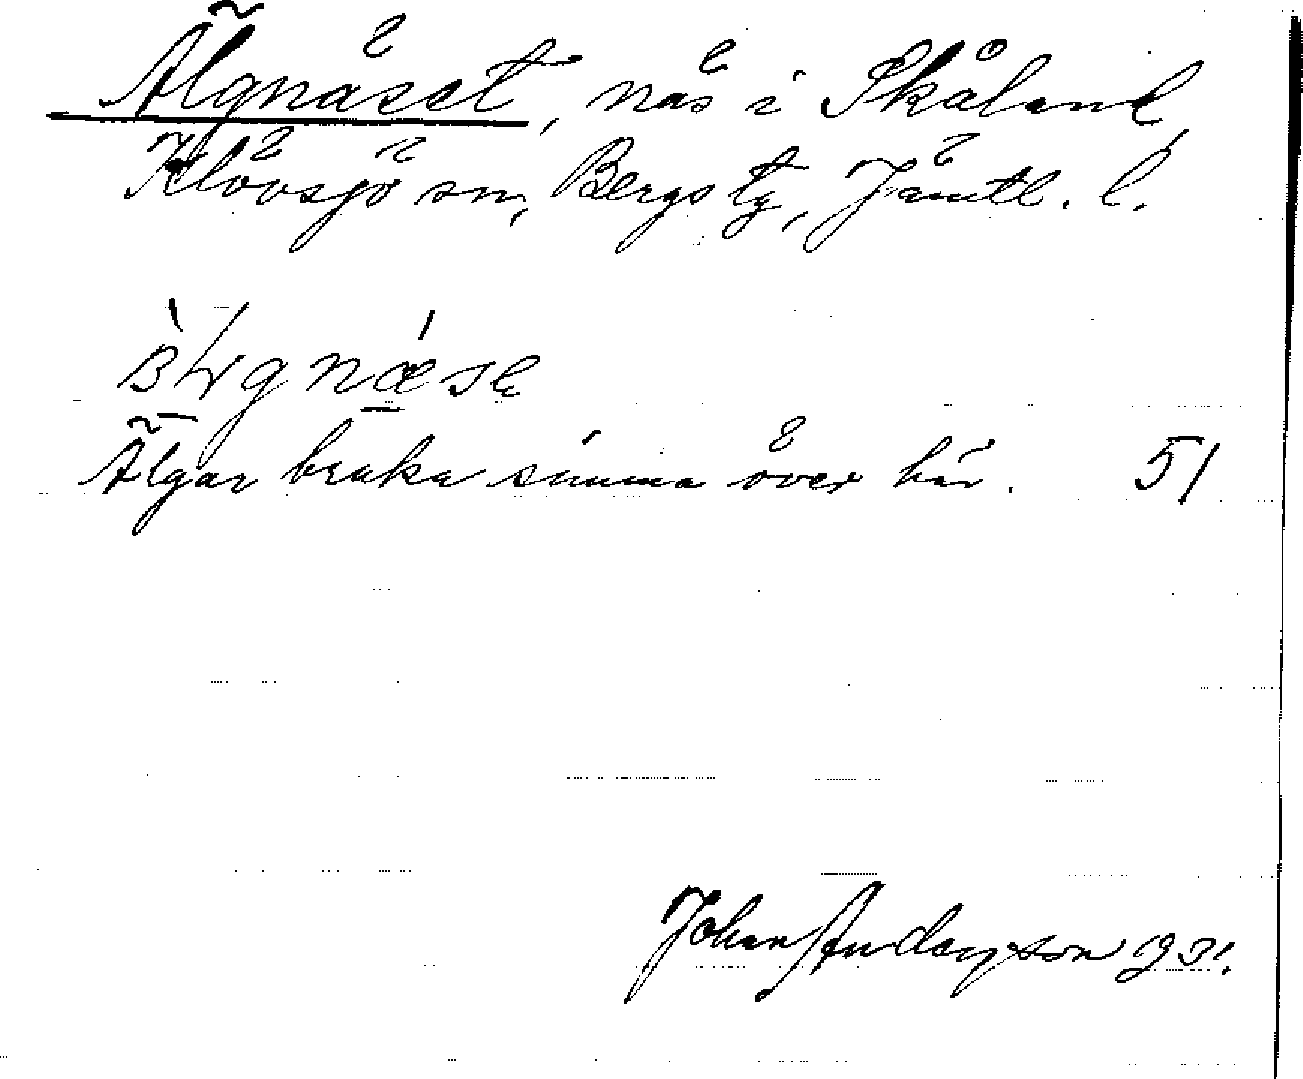 Älgnäset, näs i Skåland,
Klövsjö sn, Bergs tg, Jämtl. l.
Älgar bruka simma över här. 51
Johan Anderson 931.